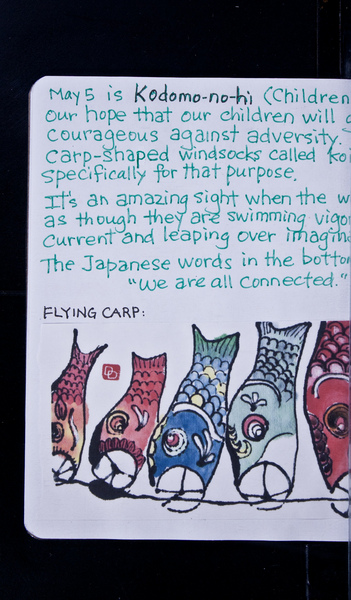 May 5 is Kodomo-no-hi (Children
our hope that our children will
courageous against adversity.
carp-shaped windsocks called Koi
specifically for that purpose.
It's an amazing sight when the w
as though they are swimming vigo
current and leaping over imagina
The Japanese words in the bottom
"We are all connected."
FLYING CARP: